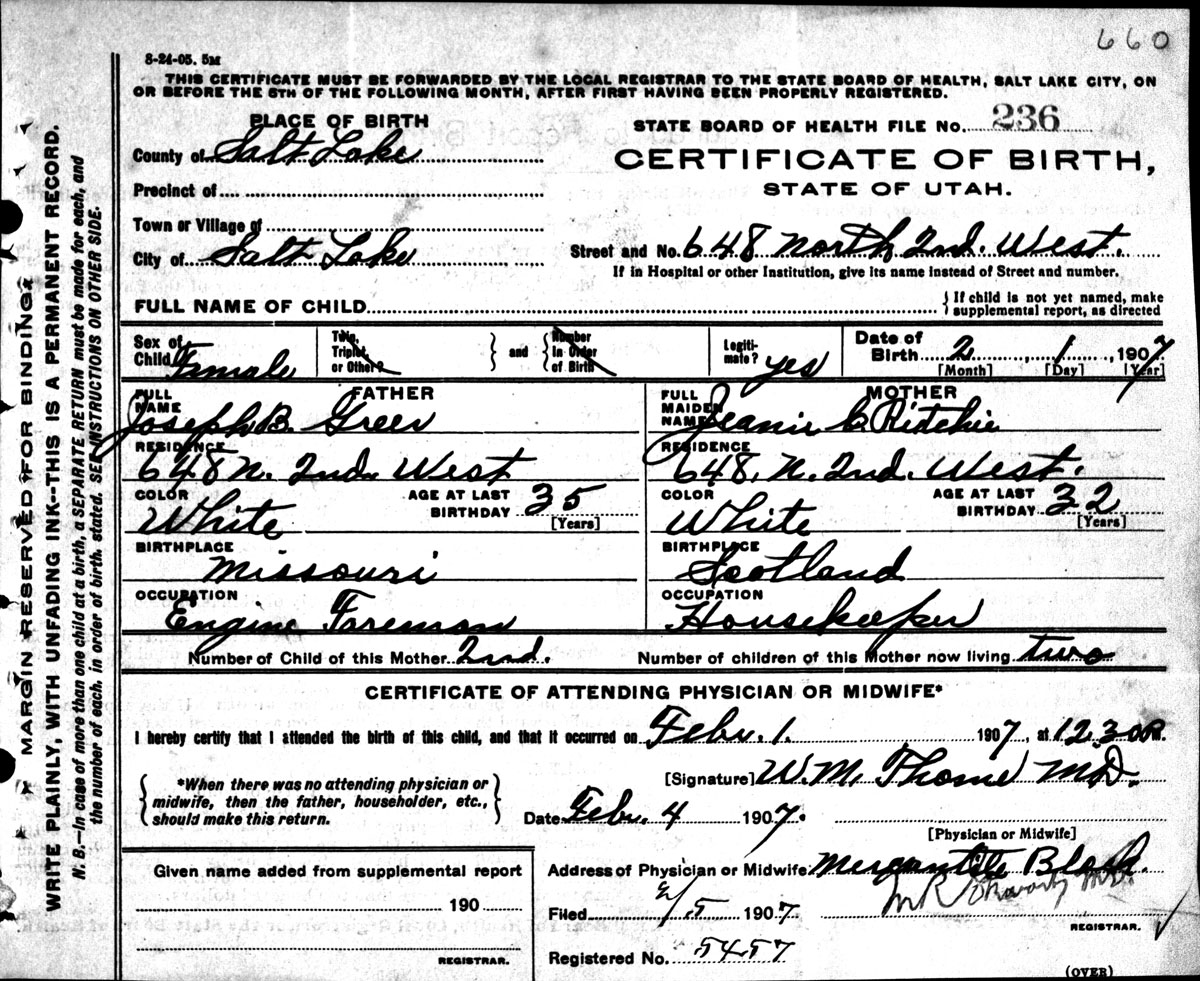 660
8-24-05. 5M
THIS CERTIFICATE MUST BE FORWARDED BY THE LOCAL REGISTRAR TO THE STATE BOARD OF HEALTH, SALT LAKE CITY, ON
OR BEFORE THE 5TH OF THE FOLLOWING MONTH, AFTER FIRST HAVING BEEN PROPERLY REGISTERED.
MARGIN RESERVED FOR BINDING.
WRITE PLAINLY, WITH UNFADING INK--THIS IS A PERMANENT RECORD.
N. B.—In case of more than one child at a birth, a SEPARATE RETURN must be made for each, and
the number of each, in order of birth, stated. SEE INSTRUCTIONS ON OTHER SIDE.
PLACE OF BIRTH
STATE BOARD OF HEALTH FILE No. 236
County of Salt Lake
CERTIFICATE OF BIRTH,
Precinct of
STATE OF UTAH.
Town or Village of
Street and No. 648 North 2nd. West.
City of Salt Lake
If in Hospital or other Institution, give its name instead of Street and number.
FULL NAME OF CHILD
} If child is not yet named, make
supplemental report, as directed
Sex of Child Female
Twin, Triplet, or Other?
} and {
Number In Order of Birth
Legiti-mate? yes
Date of Birth 2 1, 1907
[Month] [Day] [Year]
FATHER
MOTHER
FULL NAME Joseph B. Green
FULL MAIDEN NAME Jeanie C Ritchie
RESIDENCE
648 N. 2nd West
RESIDENCE
648. N. 2nd. West.
COLOR White
AGE AT LAST BIRTHDAY 35 [Years]
COLOR White
AGE AT LAST BIRTHDAY 32 [Years]
BIRTHPLACE
Missouri
BIRTHPLACE
Scotland
OCCUPATION
Engine Foreman
OCCUPATION
Housekeeper
Number of Child of this Mother 2nd.
Number of children of this Mother now living two
CERTIFICATE OF ATTENDING PHYSICIAN OR MIDWIFE*
I hereby certify that I attended the birth of this child, and that it occurred on Feby. 1. 1907, at 12.30 P.M.
{ *When there was no attending physician or
midwife, then the father, householder, etc.,
should make this return. }
[Signature] W. M. MD.
Date Feby. 4 1907.
[Physician or Midwife]
Given name added from supplemental report
190
REGISTRAR.
Address of Physician or Midwife Mercantile Block.
Filed 2/5 1907
REGISTRAR.
Registered No. 5457
(OVER)